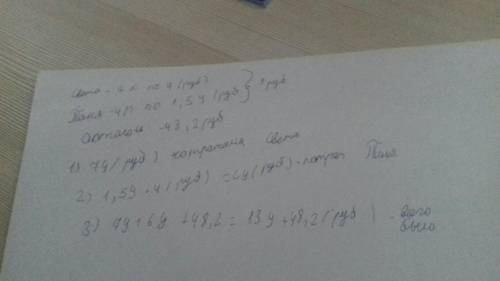 Света - 4 к по y (руб)
Таня - 4 р по 1,5y (руб) } ? руб
Осталось - 48,2 руб
1) 7y (руб) потратила Света
2) 1,5y • 4 (руб) = 6y (руб) - потрат Таня
3) 7y + 6y + 48,2 = 13y + 48,2 (руб) - всего было